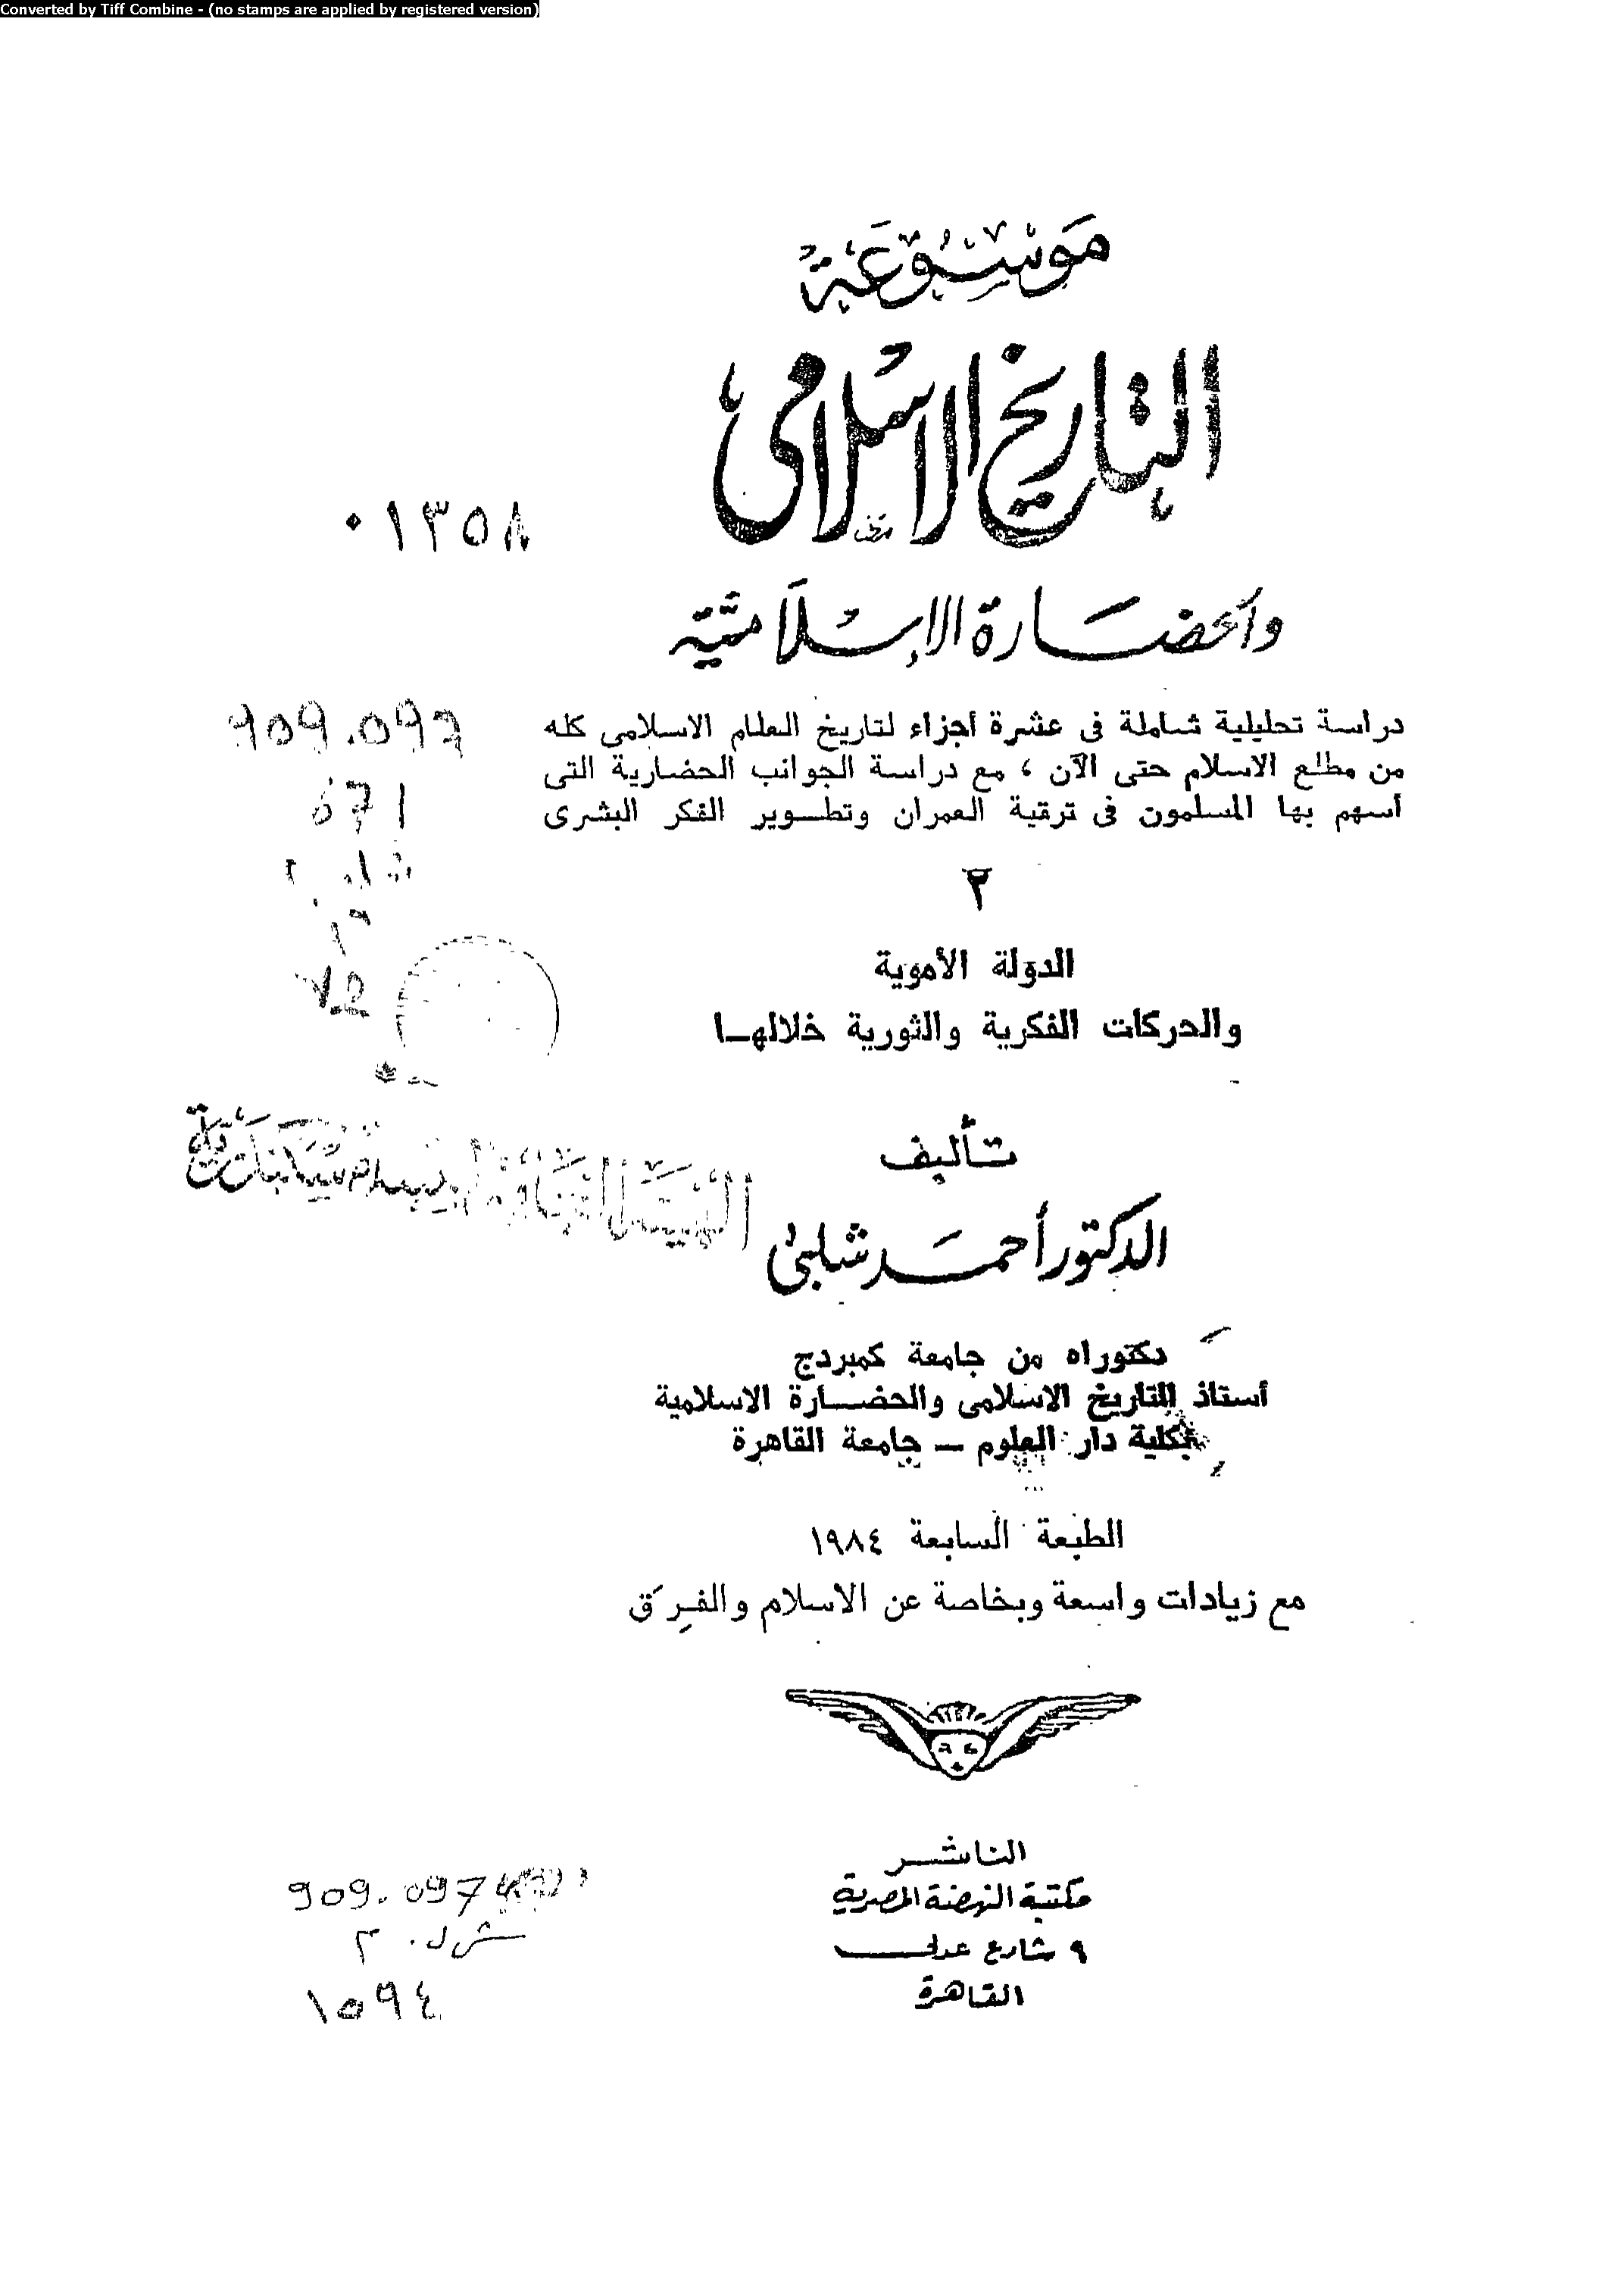 Converted by Tiff Combine - (no stamps are applied by registered version)
موسوعة
التاريخ الاسلامى
٠١٣٥٨
والحضارة الإسلامية
دراسة تحليلية شاملة فى عشرة أجزاء لتاريخ العالم الاسلامى كله
من مطلع الاسلام حتى الآن ، مع دراسة الجوانب الحضارية التى
أسهم بها المسلمون فى ترقية العمران وتطوير الفكر البشرى
909.097
٢
الدولة الأموية
والحركات الفكرية والثورية خلالها
تأليف
الدكتور أحمد شلبى
دكتوراه من جامعة كمبردج
أستاذ التاريخ الاسلامى والحضارة الاسلامية
بكلية دار العلوم — جامعة القاهرة
الطبعة السابعة ١٩٨٤
مع زيادات واسعة وبخاصة عن الاسلام والفِرَق
الناشر
مكتبة النهضة المصرية
٩ شارع عدلى
القاهرة
909.097
ش ل . ٢
١٥٩٤